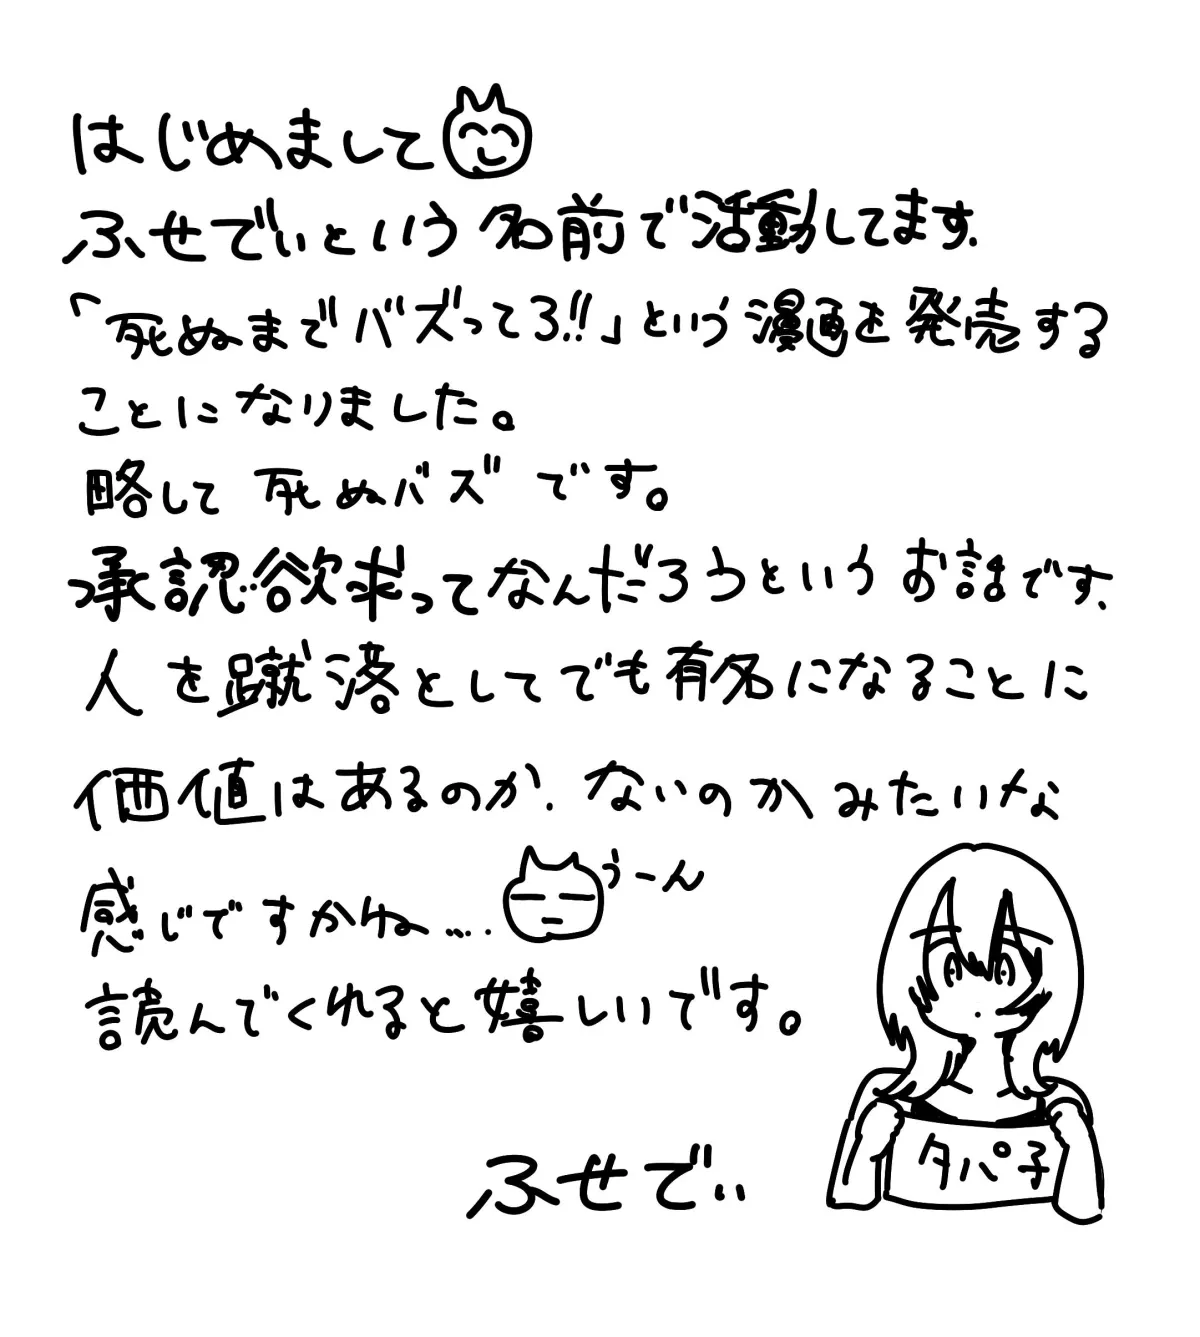 はじめまして
ふせでぃという名前で活動してます、
「死ぬまでバズってろ!!」という漫画を発売する
ことになりました。
略して 死ぬバズ です。
承認欲求ってなんだろうという お話です、
人を蹴落としてでも有名になることに
価値はあるのか、ないのか みたいな
感じですかね.....
うーん
読んでくれると嬉しいです。
タパ子
ふせでぃ